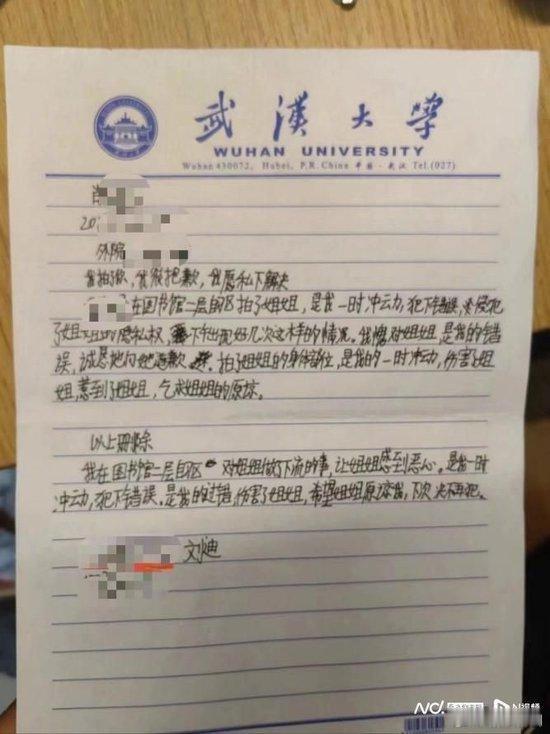 武汉大学
WUHAN UNIVERSITY
Wuhan 430072, Hubei, P.R. China 中国·武汉 Tel.(027)
20
外院
我拍了你,我很抱歉,我愿私下解决
在图书馆二层自习区拍了姐姐,是我一时冲动,犯下错误,侵犯
了姐姐的隐私权,下午出现好几次这样的情况。我愧对姐姐,是我的错
误,诚恳地向她道歉,拍了姐姐的身体部位,是我的一时冲动,伤害了姐
姐,惹到了姐姐,乞求姐姐的原谅。
以上删除
我在图书馆二层自习区对姐姐做了下流的事,让姐姐感到恶心。是我一时
冲动,犯下错误。是我的过错,伤害了姐姐,希望姐姐原谅我,下次决不再犯。